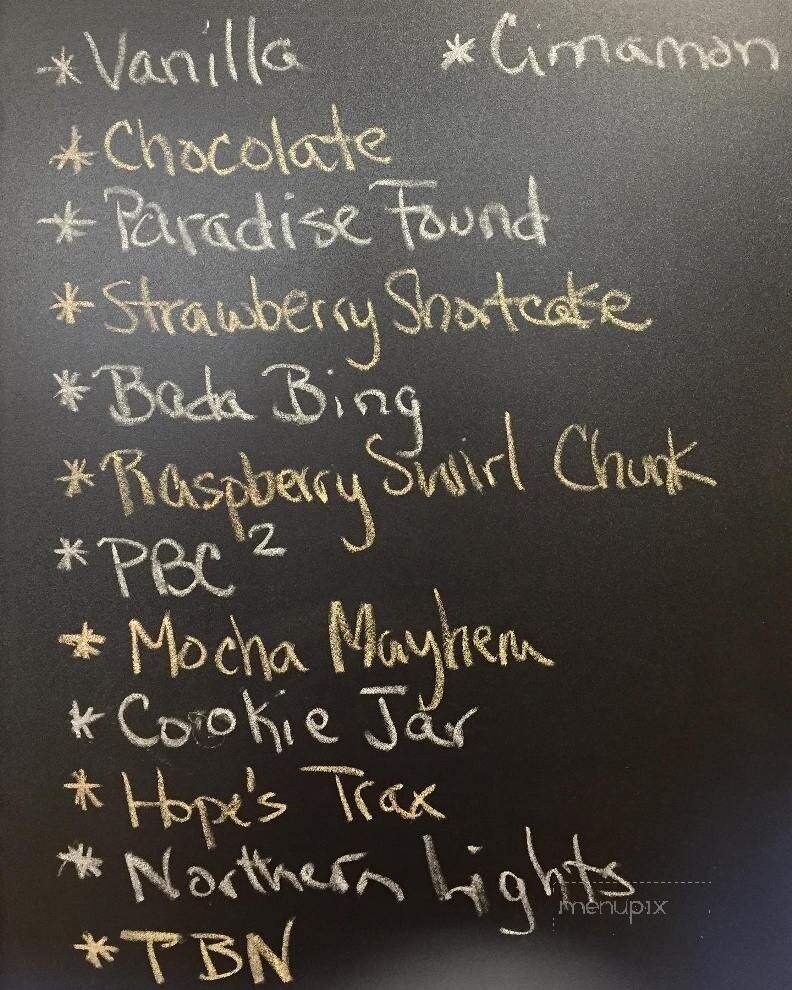 *Vanilla *Cinnamon
*Chocolate
*Paradise Found
*Strawberry Shortcake
*Bada Bing
*Raspberry Swirl Chunk
*PBC²
*Mocha Mayhem
*Cookie Jar
*Hope's Trax
*Northern Lights
menupix
*TBN